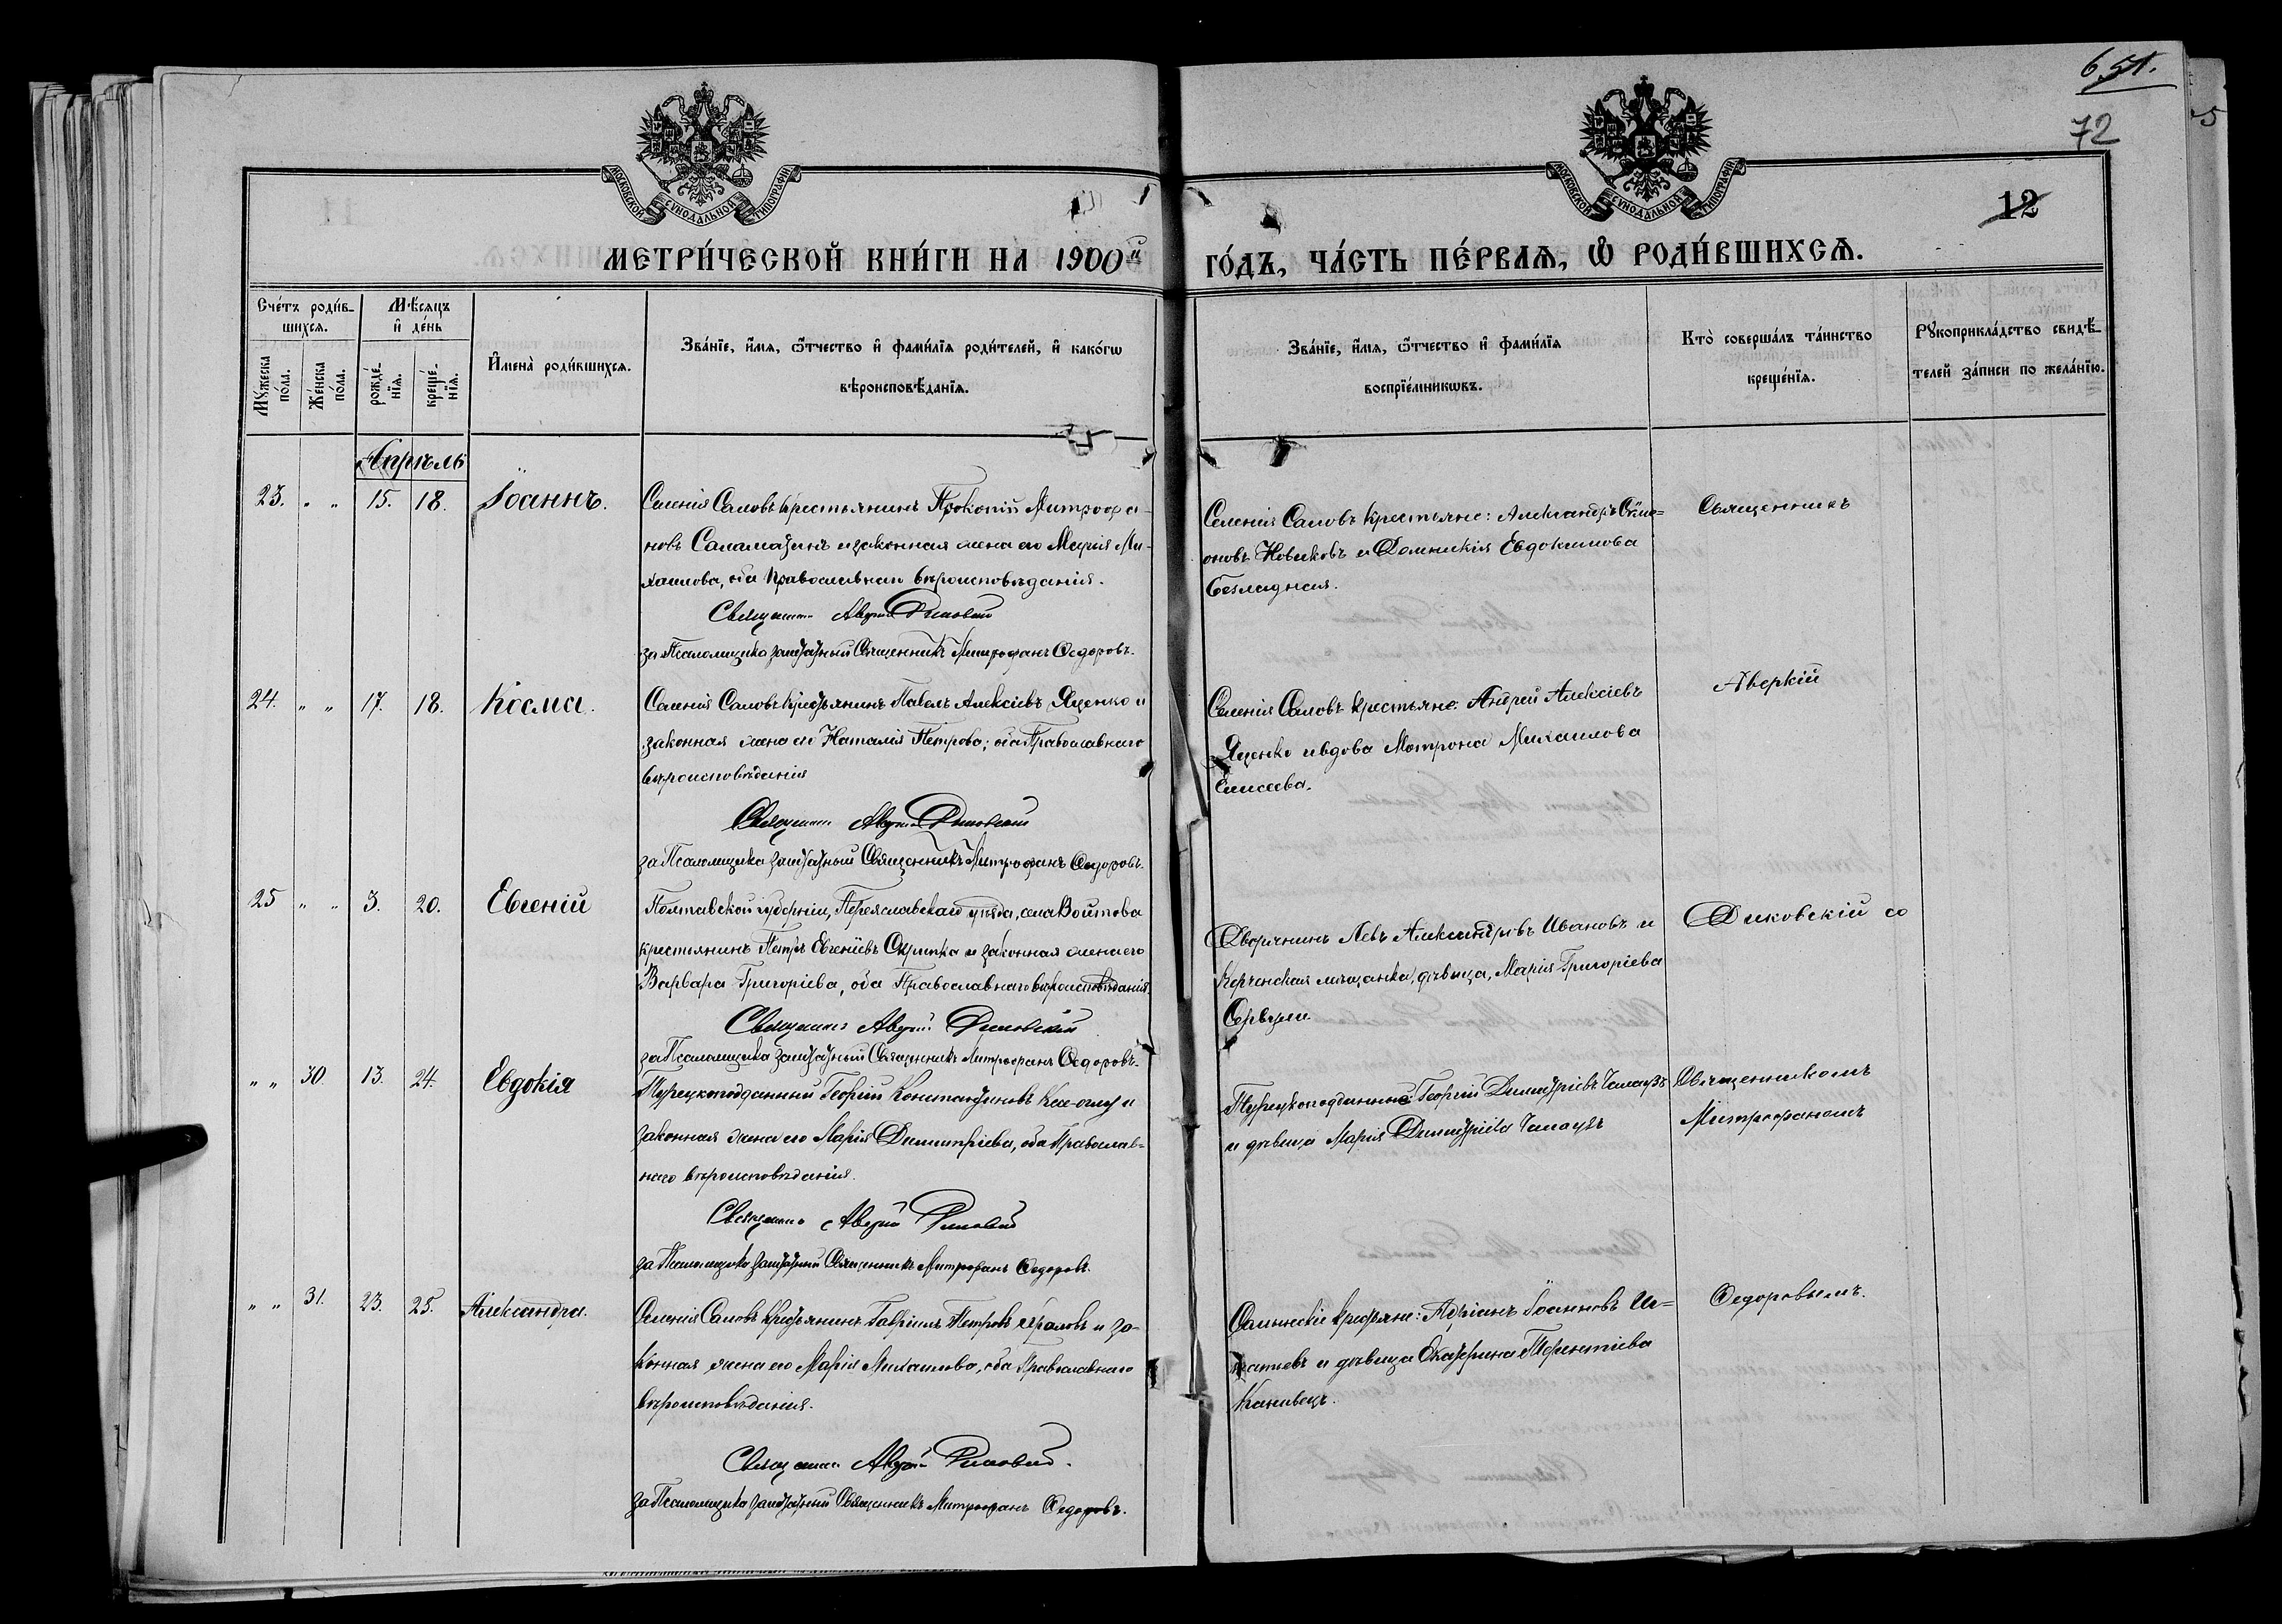 651.
72
5
МОСКОВСКОЙ СѴНОДАЛЬНОЙ ТИПОГРАФІИ
МОСКОВСКОЙ СѴНОДАЛЬНОЙ ТИПОГРАФІИ
12
МЕТРИ́ЧЕСКОЙ КНИ́ГИ НА 1900й
ГО́ДЪ, ЧА́СТЬ ПЕ́РВАѦ, Ѽ РОДИ́ВШИХСѦ.
Сче́тъ роди́в-
шихся.
Мѣ́сяцъ
и҆ де́нь
Мꙋ́жеска по́ла.
Же́нска по́ла.
рожде́-
нїя.
креще́-
нїя.
И҆мена̀ роди́вшихся.
Зва́нїе, и҆́мя, ѻ҆́тчество и҆ фами́лїя роди́телей, и҆ како́гѡ
вѣроисповѣ́данїя.
Зва́нїе, и҆́мя, ѻ҆́тчество и҆ фами́лїя
воспрїе́мникѡвъ.
Кто̀ соверша́лъ та́инство
креще́нїя.
Рꙋкоприкла́дство свидѣ́-
телей за́писи по жела́нїю.
Апрѣль
23. " " 15. 18. Іоаннъ.
Селенія Саловъ крестьянинъ Прокопій Митрофа-
новъ Саламатинъ и законная жена его Марія Ми-
хаилова, оба Православнаго вѣроисповѣданія.
Священникъ Аверкій Диковскій
за Псаломщика заштатный Священникъ Митрофанъ Ѳедоровъ.
Селенія Саловъ крестьяне: Александръ Сѵме-
оновъ Новиковъ и Домникія Евдокимова
Безладная.
Священникъ
24. " " 17. 18. Косма.
Селенія Саловъ крестьянинъ Павелъ Алексіевъ Яценко и
законная жена его Наталія Петрова; оба Православнаго
вѣроисповѣданія
Священникъ Аверкій Диковскій
за Псаломщика заштатный Священникъ Митрофанъ Ѳедоровъ.
Селенія Саловъ крестьяне: Андрей Алексіевъ
Яценко и вдова Матрона Михаилова
Елисеева.
Аверкій
25 " " 3. 20. Евгеній
Полтавской губерніи, Переяславскаго уѣзда, села Войтова
крестьянинъ Петръ Евгеніевъ Скрипка и законная жена его
Варвара Григоріева, оба Православнаго вѣроисповѣданія.
Священникъ Аверкій Диковскій
за Псаломщика заштатный Священникъ Митрофанъ Ѳедоровъ.
Дворянинъ Левъ Александровъ Ивановъ и
Керченская мѣщанка, дѣвица, Марія Григоріева
Диковскій со
" " 30. 13. 24. Евдокія
Турецкоподданный Георгій Константиновъ и
законная жена его Марія Димитріева, оба Православ-
наго вѣроисповѣданія.
Священникъ Аверкій Диковскій
за Псаломщика заштатный Священникъ Митрофанъ Ѳедоровъ.
Турецкоподданные: Георгій Димитріевъ
и дѣвица Марія Димитріева
Священникомъ
Митрофаномъ
" " 31. 23. 25. Александра.
Селенія Саловъ крестьянинъ Гавріилъ Петровъ и за-
конная жена его Марія Михаилова, оба Православнаго
вѣроисповѣданія.
Священникъ Аверкій Диковскій.
за Псаломщика заштатный Священникъ Митрофанъ Ѳедоровъ.
крестьяне: Адріанъ Іоанновъ Иг-
натьевъ и дѣвица Екатерина Терентіева
Каневецъ.
Ѳедоровымъ.